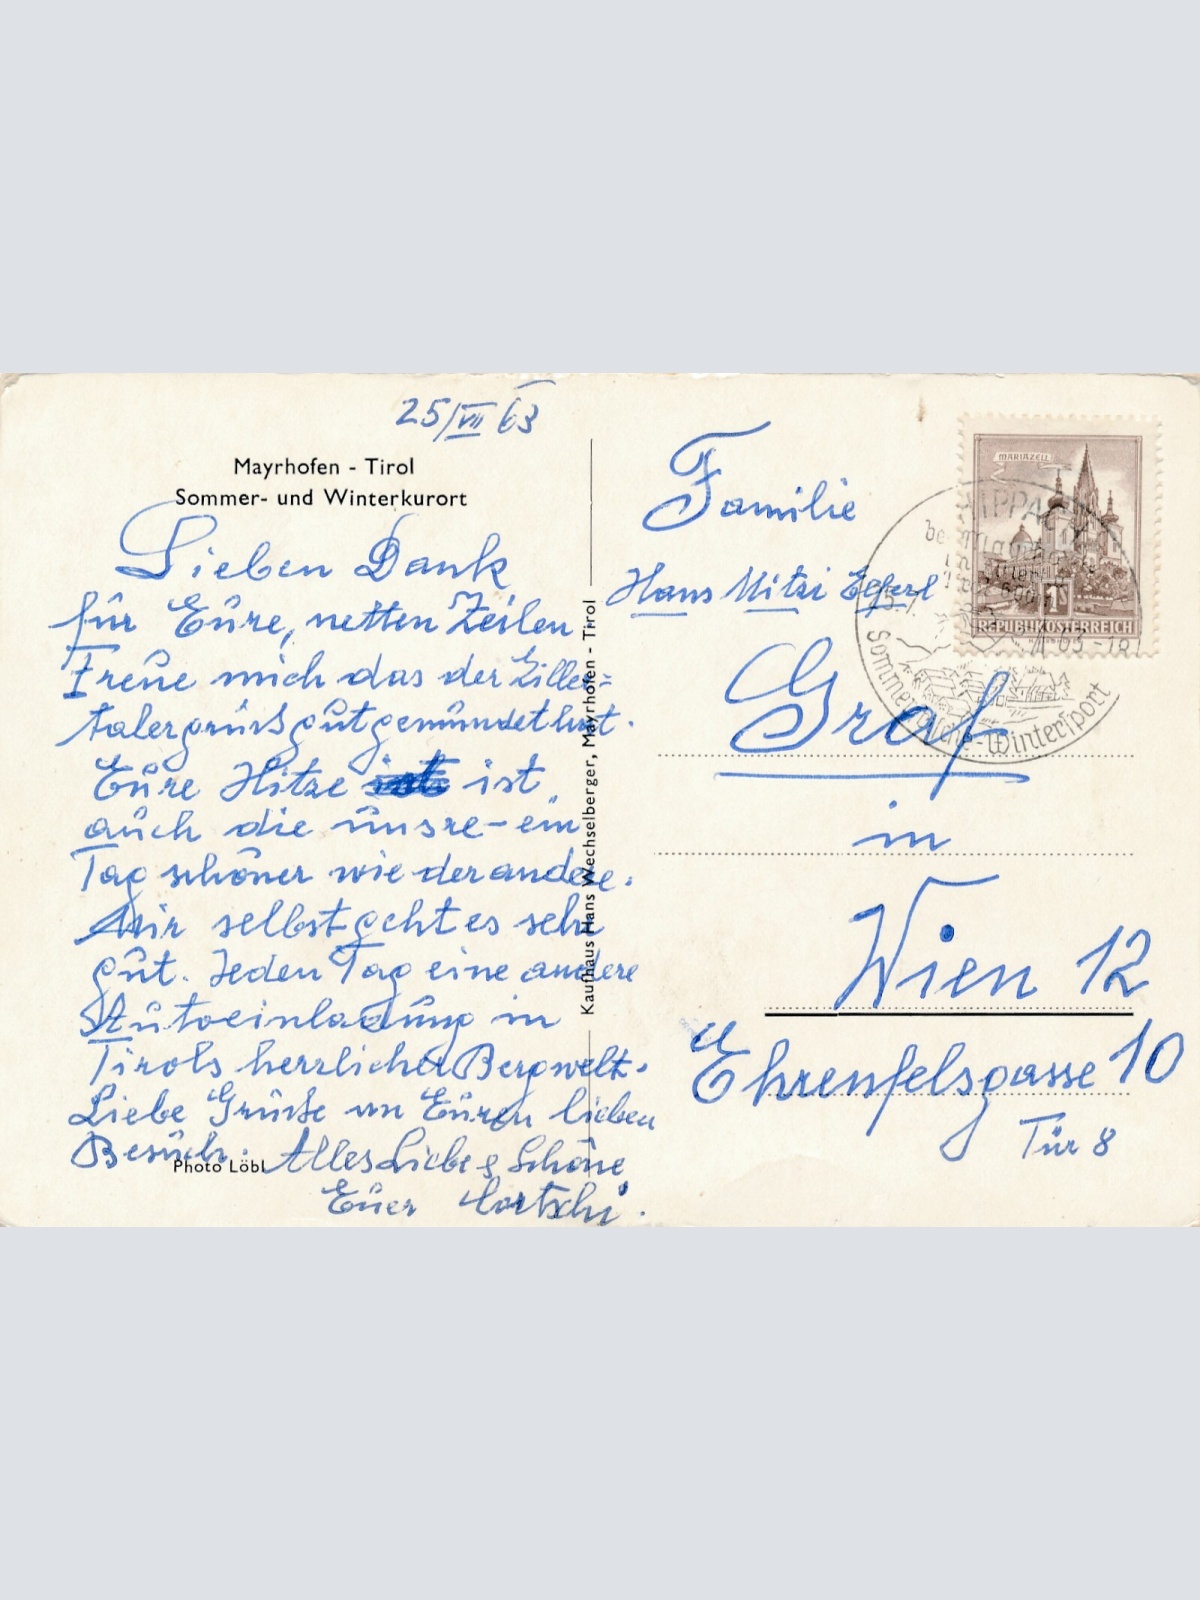 25/VII 63
Mayrhofen - Tirol
Sommer- und Winterkurort
Lieben Dank
für Eure, netten Zeilen
Freue mich das der Ziller=
talergruß gut gemundet hat.
Eure Hitze ist
auch die unsre - ein
Tag schöner wie der andere.
Mir selbst geht es sehr
gut. Jeden Tag eine andere
Autoeinladung in
Tirols herrlicher Bergwelt.
Liebe Grüße an Euren lieben
Besuch. Alles Liebe & Schöne
Euer
Photo Löbl
Kaufhaus Hans Wechselberger, Mayrhofen - Tirol
Familie
Hans Mitzi
Graf
in
Wien 12
Ehrenfelsgasse 10
Tür 8
MARIAZELL
1
REPUBLIK ÖSTERREICH
HIPPACH
Sommerfrische-Wintersport